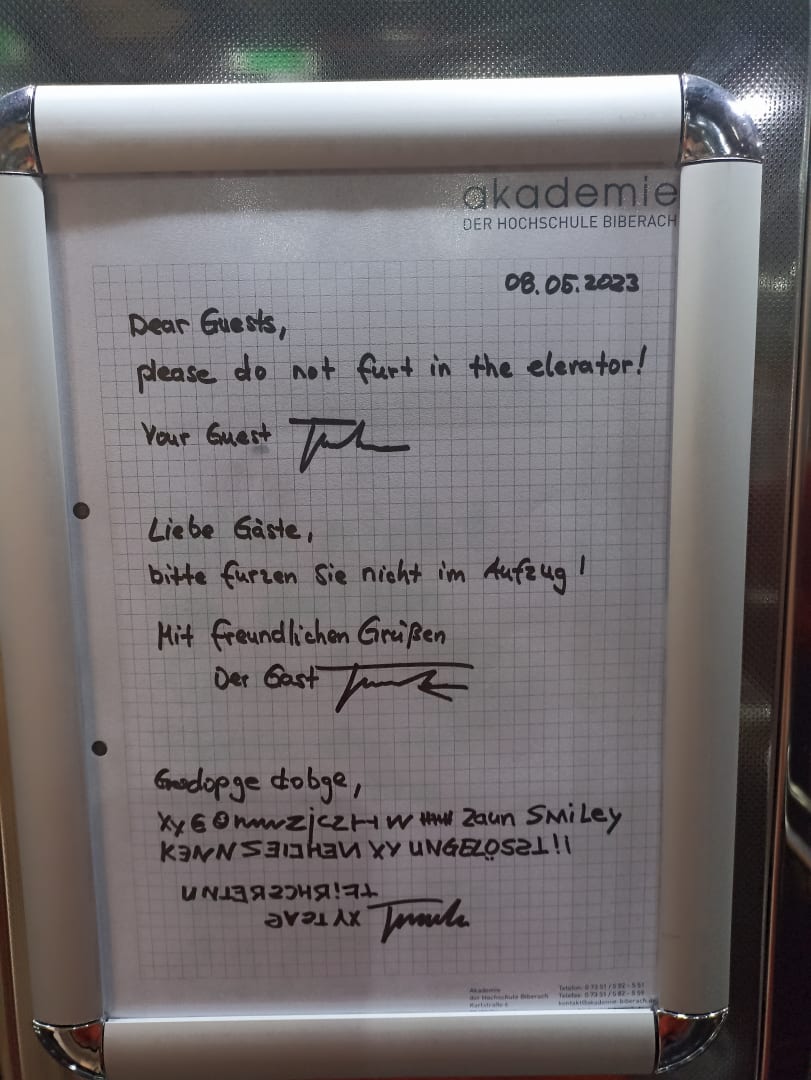 akademie
DER HOCHSCHULE BIBERACH
08.05.2023
Dear Guests,
please do not furt in the elevator!
Your Guest
Liebe Gäste,
bitte furzen Sie nicht im Aufzug!
Mit freundlichen Grüßen
Der Gast
dobge,
Zaun SMiLey
XY UNGELÖSST!!
XY
Akademie
der Hochschule Biberach
Karlstraße 6
Telefon: 0 73 51 / 5 82 - 5 51
Telefax: 0 73 51 / 5 82 - 5 59
kontakt@akademie-biberach.de